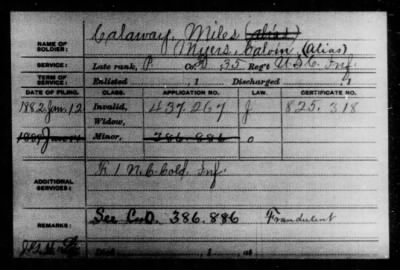 Calaway, Miles (alias)
NAME OF SOLDIER: Myers, Calvin, (Alias)
SERVICE: Late rank, P Co. 35 Reg't U.S.C. Inf.
TERM OF SERVICE: Enlisted , 1 Discharged , 1
DATE OF FILING. CLASS. APPLICATION NO. LAW. CERTIFICATE NO.
1882 Jan. 12 Invalid, 437.267 J 825.318
Widow,
Minor, 386.886
ADDITIONAL SERVICES: K 1 N.C. Cold. Inf.
REMARKS: See C.D. 386.886 Fraudulent
Died , 1 , at